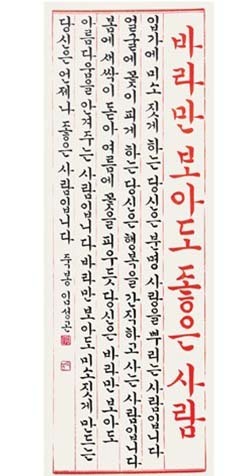 바라만 보아도 좋은 사람
입가에 미소 짓게 하는 당신은 분명 사랑을 뿌리는 사람입니다
얼굴에 꽃이 피게 하는 당신은 행복을 간직하고 사는 사람입니다
봄에 새싹이 돋아 여름에 꽃을 피우듯 당신은 바라만 보아도
아름다움을 안겨주는 사람입니다 바라만 보아도 미소짓게 만드는
당신은 언제나 좋은 사람입니다 죽봉 임성곤